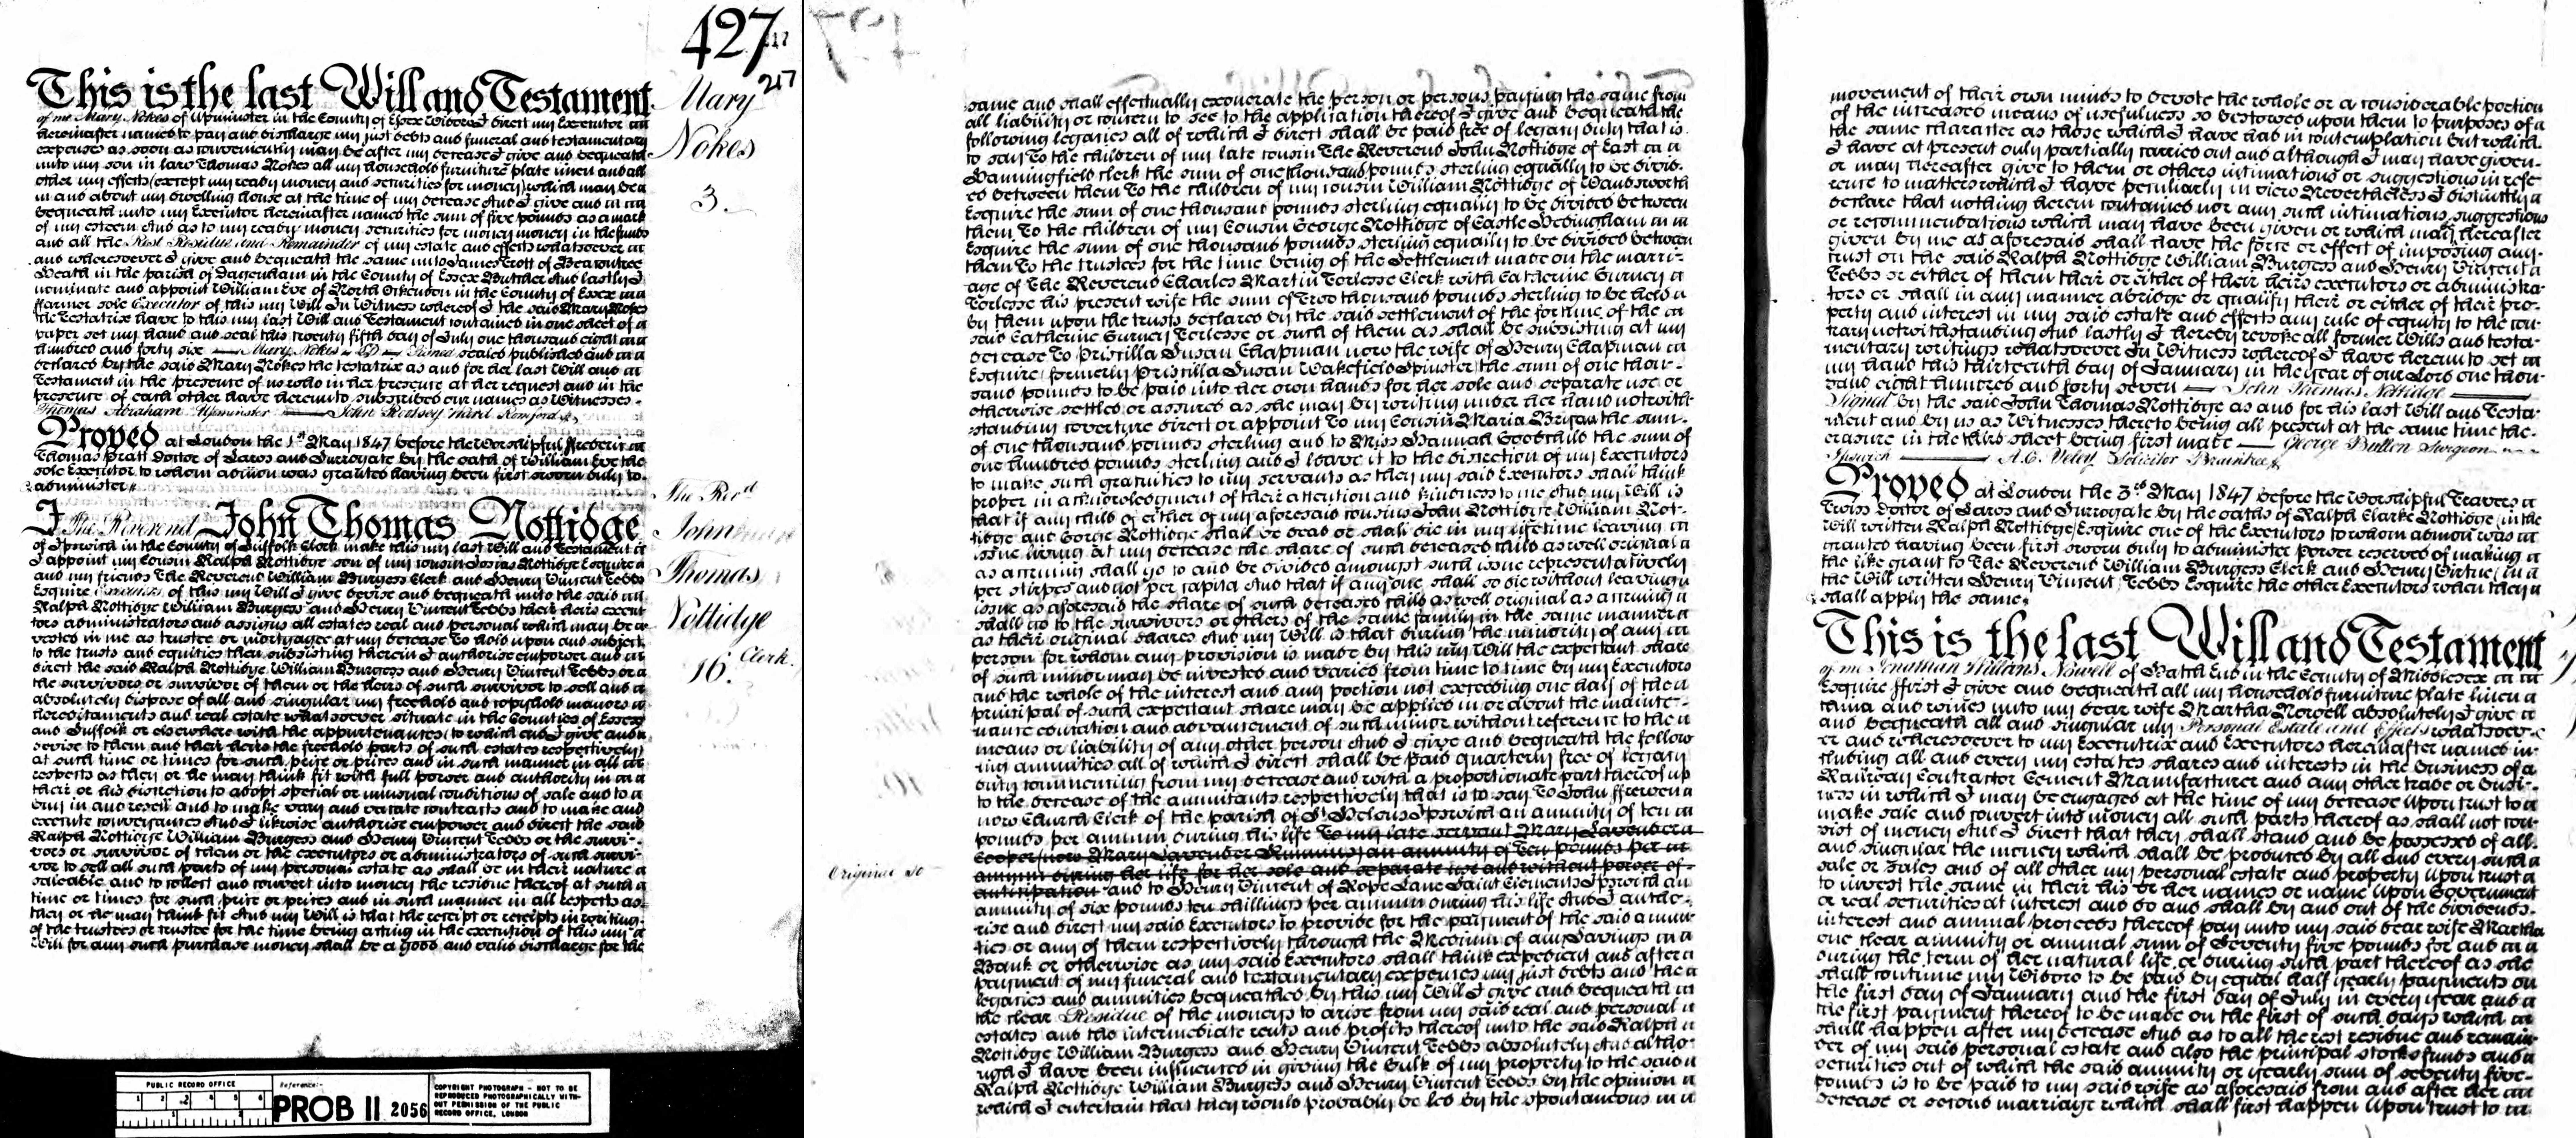 427
217
This is the last Will and Testament
of me Mary Nokes of Upminster in the County of Essex Widow I direct my Executor
hereinafter named to pay and discharge my just debts and funeral and testamentary
expenses as soon as conveniently may be after my decease I give and bequeath
unto my son in law Thomas Nokes all my household furniture plate linen and all
other my effects (except my ready money and securities for money) which may be
in and about my dwelling house at the time of my decease And I give and
bequeath unto my Executor hereinafter named the sum of five pounds as a mark
of my esteem And as to my ready money securities for money money in the funds
and all the Rest Residue and Remainder of my estate and effects whatsoever
and wheresoever I give and bequeath the same unto James Trott of Beacontree
Heath in the parish of Dagenham in the County of Essex Butcher And lastly I
nominate and appoint William Eve of North Ockendon in the County of Essex
ffarmer sole Executor of this my Will In Witness whereof I the said Mary Nokes
the testatrix have to this my last Will and Testament contained in one sheet of
paper set my hand and seal this twenty fifth day of July one thousand eight
hundred and forty six — Mary Nokes — Signed sealed published and
declared by the said Mary Nokes the testatrix as and for her last Will and
Testament in the presence of us who in her presence at her request and in the
presence of each other have hereunto subscribed our names as Witnesses -
Thomas Abraham Upminster — John Ward Romford
Proved at London the 1st May 1847 before the Worshipful Frederic
Thomas Pratt Doctor of Laws and Surrogate by the oath of William Eve the
sole Executor to whom admon was granted having been first sworn duly to
administer
Mary
Nokes
3.
I The Reverend John Thomas Nottidge
of Ipswich in the County of Suffolk Clerk make this my last Will and Testament
I appoint my Cousin Ralph Nottidge son of my cousin Josias Nottidge Esquire
and my friends The Reverend William Burgess Clerk and Henry Vincent Tebbs
Esquire Executors of this my Will I give devise and bequeath unto the said
Ralph Nottidge William Burgess and Henry Vincent Tebbs their heirs execu
tors administrators and assigns all estates real and personal which may be
vested in me as trustee or mortgagee at my decease To hold upon and subject
to the trusts and equities then subsisting therein I authorise empower and
direct the said Ralph Nottidge William Burgess and Henry Vincent Tebbs or
the survivors or survivor of them or the heirs of such survivor to sell and
absolutely dispose of all and singular my freehold and copyhold manors
hereditaments and real estate whatsoever situate in the Counties of Essex
and Suffolk or elsewhere with the appurtenances (to which end I give and
devise to them and their heirs the freehold parts of such estates respectively)
at such time or times for such price or prices and in such manner in all
respects as they or he may think fit with full power and authority in
their or his discretion to adopt special or unusual conditions of sale and to
buy in and resell and to make vary and vacate contracts and to make and
execute conveyances And I likewise authorise empower and direct the said
Ralph Nottidge William Burgess and Henry Vincent Tebbs or the survi-
vors or survivor of them or the executors or administrators of such survi-
vor to sell all such parts of my personal estate as shall be in their nature
saleable and to collect and convert into money the residue thereof at such
time or times for such price or prices and in such manner in all respects as
they or he may think fit And my Will is that the receipt or receipts in writing
of the trustees or trustee for the time being acting in the execution of this my
Will for any such purchase money shall be a good and valid discharge for the
The Revd
John
Thomas
Nottidge
Clerk.
16.
PUBLIC RECORD OFFICE
Reference:-
PROB 11 2056
COPYRIGHT PHOTOGRAPH - NOT TO BE
REPRODUCED PHOTOGRAPHICALLY WITH-
OUT PERMISSION OF THE PUBLIC
RECORD OFFICE, LONDON
same and shall effectually exonerate the person or persons paying the same from
all liability or concern to see to the application thereof I give and bequeath the
following legacies all of which I direct shall be paid free of legacy duty that is
to say To the children of my late cousin The Reverend John Nottidge of East
Hanningfield Clerk the sum of one thousand pounds sterling equally to be divid-
ed between them To the children of my cousin William Nottidge of Wandsworth
Esquire the sum of one thousand pounds sterling equally to be divided between
them To the children of my Cousin George Nottidge of Castle Hedingham
Esquire the sum of one thousand pounds sterling equally to be divided between
them To the trustees for the time being of the Settlement made on the marri-
age of The Reverend Charles Martin Torlesse Clerk with Catherine Gurney
Torlesse his present wife the sum of two thousand pounds sterling to be held
by them upon the trusts declared by the said settlement of the fortune of the
said Catherine Gurney Torlesse or such of them as shall be subsisting at my
decease To Priscilla Susan Chapman now the wife of Henry Chapman
Esquire (formerly Priscilla Susan Wakefield Spinster) the sum of one thou-
sand pounds to be paid into her own hands for her sole and separate use or
otherwise settled or assured as she may by writing under her hand notwith-
standing coverture direct or appoint To my Cousin Maria Bryan the sum
of one thousand pounds sterling and to Miss Hannah Goodchild the sum of
one hundred pounds sterling and I leave it to the discretion of my Executors
to make such gratuities to my servants as they my said Executors shall think
proper in acknowledgment of their attention and kindness to me And my Will is
that if any child of either of my aforesaid cousins John Nottidge William Not-
tidge and George Nottidge shall be dead or shall die in my lifetime leaving
issue living at my decease the share of such deceased child as well original
as accruing shall go to and be divided amongst such issue representatively
per stirpes and not per capita And that if any one shall so die without leaving
issue as aforesaid the share of such deceased child as well original as accruing
shall go to the survivors or others of the same family in the same manner
as their original shares And my Will is that during the minority of any
person for whom any provision is made by this my Will the expectant share
of such minor may be invested and varied from time to time by my Executors
and the whole of the interest and any portion not exceeding one half of the
principal of such expectant share may be applied in or about the mainte-
nance education and advancement of such minor without reference to the
means or liability of any other person And I give and bequeath the follow
ing annuities all of which I direct shall be paid quarterly free of legacy
duty commencing from my decease and with a proportionate part thereof up
to the decease of the annuitants respectively that is to say To John ffrewen
now Church Clerk of the parish of St Helens Ipswich an annuity of ten
pounds per annum during his life To my late servant Mary Lavender
Cooper (now Mary Lavender Simmons) an annuity of ten pounds per
annum during her life for her sole and separate use and without power of
anticipation and to Henry Vincent of Rope Lane Saint Clements Ipswich an
annuity of six pounds ten shillings per annum during his life And I autho-
rise and direct my said Executors to provide for the payment of the said annui
ties or any of them respectively through the Medium of any Savings
Bank or otherwise as my said Executors shall think expedient and after
payment of my funeral and testamentary expenses my just debts and the
legacies and annuities bequeathed by this my Will I give and bequeath
the clear Residue of the moneys to arise from my said real and personal
estates and the intermediate rents and profits thereof unto the said Ralph
Nottidge William Burgess and Henry Vincent Tebbs absolutely And altho-
ugh I have been influenced in giving the bulk of my property to the said
Ralph Nottidge William Burgess and Henry Vincent Tebbs by the opinion
which I entertain that they would probably be led by the spontaneous
Original so
movement of their own minds to devote the whole or a considerable portion
of the increased means of usefulness so bestowed upon them to purposes of
the same character as those which I have had in contemplation but which
I have at present only partially carried out and although I may have given
or may hereafter give to them or others intimations or suggestions in refe-
rence to matters which I have peculiarly in view Nevertheless I distinctly
declare that nothing herein contained nor any such intimations suggestions
or recommendations which may have been given or which may hereafter
given by me as aforesaid shall have the force or effect of imposing any
trust on the said Ralph Nottidge William Burgess and Henry Vincent
Tebbs or either of them their or either of their heirs executors or administra
tors or shall in any manner abridge or qualify their or either of their pro-
perty and interest in my said estate and effects any rule of equity to the con-
trary notwithstanding And lastly I hereby revoke all former Wills and testa-
mentary writings whatsoever In Witness whereof I have hereunto set
my hand this thirteenth day of January in the year of our Lord one thou-
sand eight hundred and forty seven — John Thomas Nottidge —
Signed by the said John Thomas Nottidge as and for his last Will and Testa-
ment and by us as Witnesses thereto being all present at the same time the
erasure in the third sheet being first made — George Bullen Surgeon
Ipswich — A.C. Veley Solicitor Braintree
Proved at London the 3rd May 1847 before the Worshipful Travers
Twiss Doctor of Laws and Surrogate by the oaths of Ralph Clarke Nottidge (in the
Will written Ralph Nottidge) Esquire one of the Executors to whom admon was
granted having been first sworn duly to administer power reserved of making
the like grant to The Reverend William Burgess Clerk and Henry Virtue (in
the Will written Henry Vincent) Tebbs Esquire the other Executors when they
shall apply the same.
This is the last Will and Testament
of me Jonathan Willans Nowell of Heath End in the County of Middlesex
Esquire ffirst I give and bequeath all my household furniture plate linen
china and wines unto my dear wife Martha Nowell absolutely I give
and bequeath all and singular my Personal Estate and Effects whatsoev-
er and wheresoever to my Executrix and Executors hereinafter named in-
cluding all and every my estates shares and interests in the business of
Railway Contractor Cement Manufacturer and any other trade or busi-
ness in which I may be engaged at the time of my decease Upon trust to
make sale and convert into money all such parts thereof as shall not con-
sist of money And I direct that they shall stand and be possessed of all
and singular the money which shall be produced by all and every such
sale or sales and of all other my personal estate and property Upon trust
to invest the same in their his or her names or name upon Government
or real securities at interest and do and shall by and out of the dividends
interest and annual proceeds thereof pay unto my said dear wife Martha
one clear annuity or annual sum of Seventy five pounds for and
during the term of her natural life or during such part thereof as she
shall continue my Widow to be paid by equal half yearly payments on
the first day of January and the first day of July in every year and
the first payment thereof to be made on the first of such days which
shall happen after my decease And as to all the rest residue and remain-
der of my said personal estate and also the principal stocks funds and
securities out of which the said annuity or yearly sum of seventy five
pounds is to be paid to my said wife as aforesaid from and after her
decease or second marriage which shall first happen Upon trust to